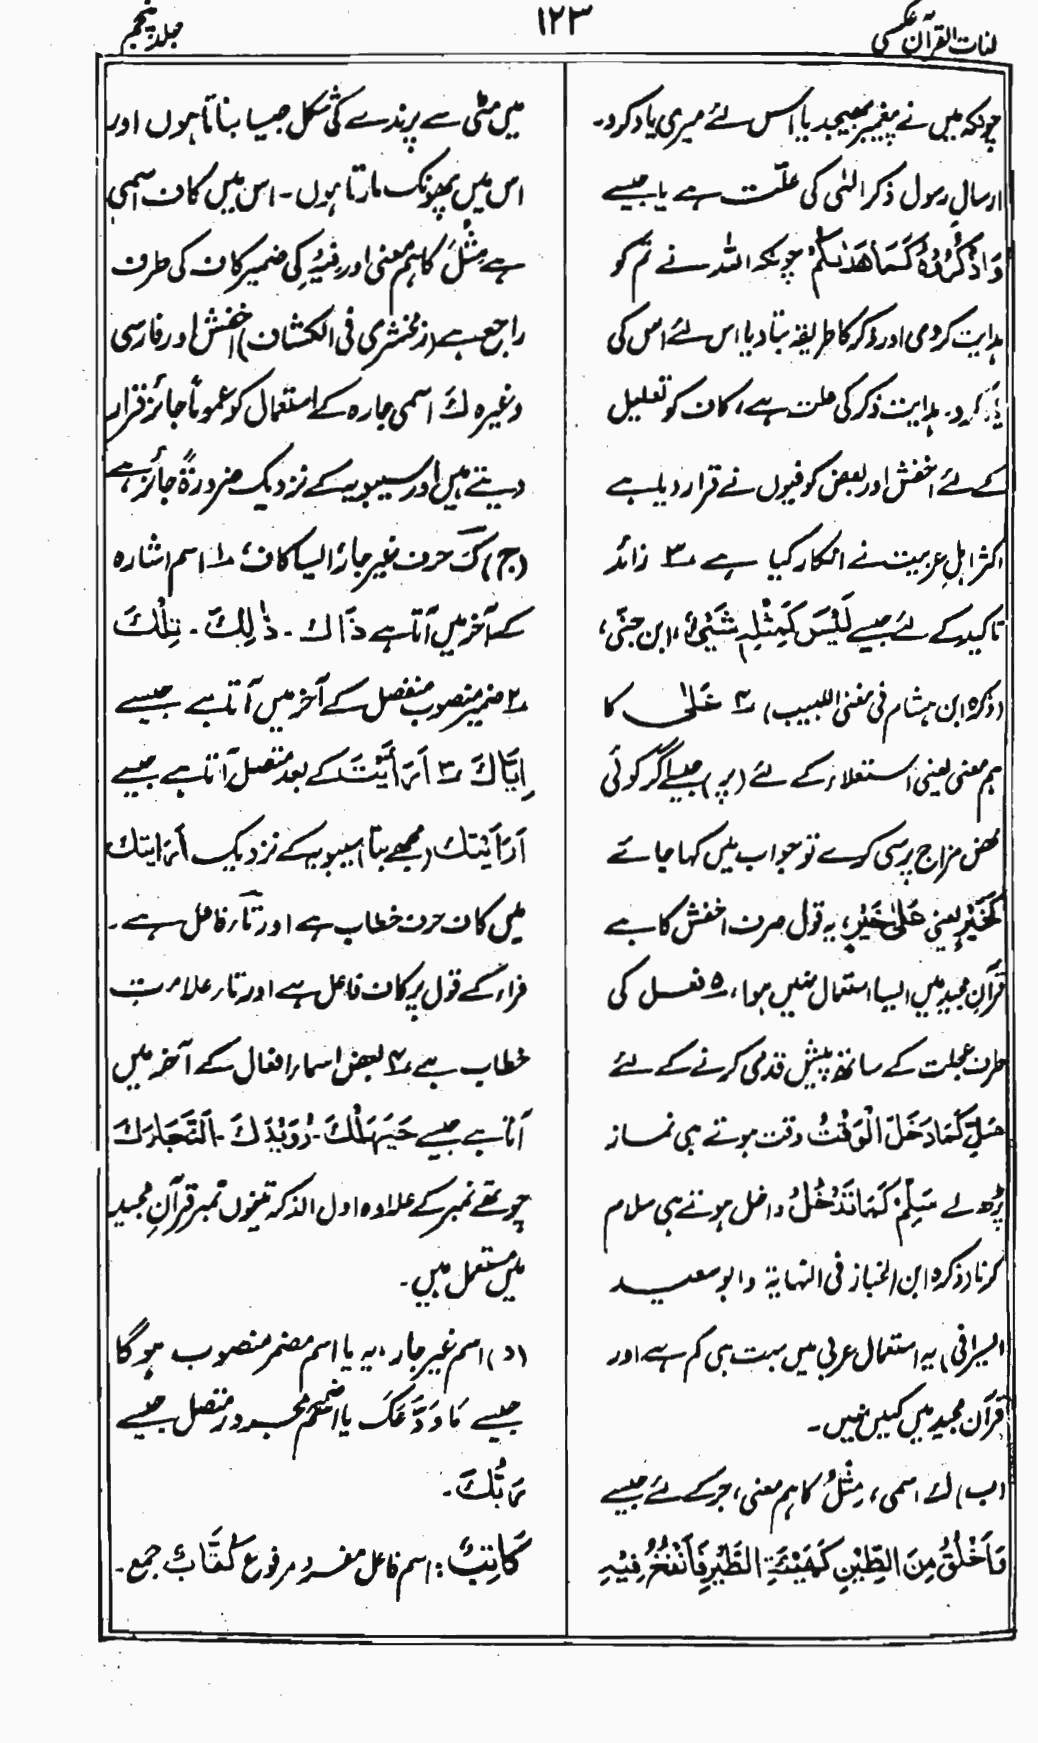 لغات القرآن عکسی
۱۲۳
جلد پنجم
چونکہ میں نے پیغمبر بھیجدیا اس لئے میری یاد کرو۔
ارسالِ رسول ذکر الٰہی کی علّت ہے یا جیسے
وَاذْكُرُوْهُ كَمَا هَدٰىكُمْ چونکہ اللہ نے تم کو
ہدایت کردی اور ذکر کا طریقہ بتادیا اس لئے اس کی
یاد کرو۔ ہدایت ذکر کی علت ہے، کاف کو تعلیل
کے لئے اخفش اور بعض کوفیوں نے قرار دیا ہے
اکثر اہل عربیت نے انکار کیا ہے ۳ زائد
تاکید کے لئے جیسے لَيْسَ كَمِثْلِهٖ شَيْءٌ، ابن جنّی،
(ذکرہ ابن ہشام فی مغنی اللبیب) ۴ عَلٰی کا
ہم معنی یعنی استعلاء کے لئے (پر) جیسے گر کوئی
بغرض مزاج پرسی کرے تو جواب میں کہا جائے
كَخَيْرٍ یعنی عَلٰی خَيْرٍ، یہ قول صرف اخفش کا ہے
قرآن مجید میں ایسا استعمال نہیں ہوا، ۵ فعل کی
طرف عجلت کے ساتھ پیش قدمی کرنے کے لئے
صَلِّ كَمَا دَخَلَ الْوَقْتُ وقت ہوتے ہی نماز
پڑھ لے سَلِّمْ كَمَا تَدْخُلُ داخل ہوتے ہی سلام
کرنا (ذکرہ ابن الخباز فی النہایۃ و ابو سعید
السیرافی) یہ استعمال عربی میں بہت ہی کم ہے اور
قرآن مجید میں کہیں نہیں۔
(ب) ك اسمی، مِثْلُ کا ہم معنی، جر کے لئے جیسے
فَاَخْلُقُ مِنَ الطِّيْنِ كَهَيْئَةِ الطَّيْرِ فَاَنْفُخُ فِيْهِ
میں مٹی سے پرندے کی شکل جیسا بناتا ہوں اور
اس میں پھونک مارتا ہوں۔ اس میں کاف اسمی
ہے مِثْلُ کا ہم معنی اور فِيْهِ کی ضمیر کاف کی طرف
راجع ہے (زمخشری فی الکشاف) اخفش اور فارسی
وغیرہ ك اسمی جارہ کے استعمال کو عموماً جائز قرار
دیتے ہیں اور سیبویہ کے نزدیک ضرورۃً جائز ہے
(ج) كَ حرف غیر جار، ایسا کاف، ۱ اسم اشارہ
کے آخر میں آتا ہے ذَاكَ۔ ذٰلِكَ۔ تِلْكَ
۲ ضمیر منصوب منفصل کے آخر میں آتا ہے جیسے
اِيَّاكَ ۳ اَرَأَيْتَ کے بعد متصل آتا ہے جیسے
اَرَاَيْتَكَ (مجھے بتا) سیبویہ کے نزدیک اَرَايتك
میں کاف حرف خطاب ہے اور تاء فاعل ہے۔
فراء کے قول پر کاف فاعل ہے اور تاء علامت
خطاب ہے، ۴ بعض اسماء افعال کے آخر میں
آتا ہے جیسے حَيَّهَلَكَ۔ رُوَيْدَكَ۔ اَلنَّجَاءَكَ
چوتھے نمبر کے علاوہ اول الذکر تینوں نمبر قرآن مجید
میں مستعمل ہیں۔
(د) اسم غیر جار، یہ یا اسم مضمر منصوب ہوگا
جیسے مَا وَدَّعَكَ یا ضمیر مجرور متصل جیسے
رَبُّكَ۔
كَاتِبٌ: اسم فاعل مفرد مرفوع كُتَّابٌ جمع۔